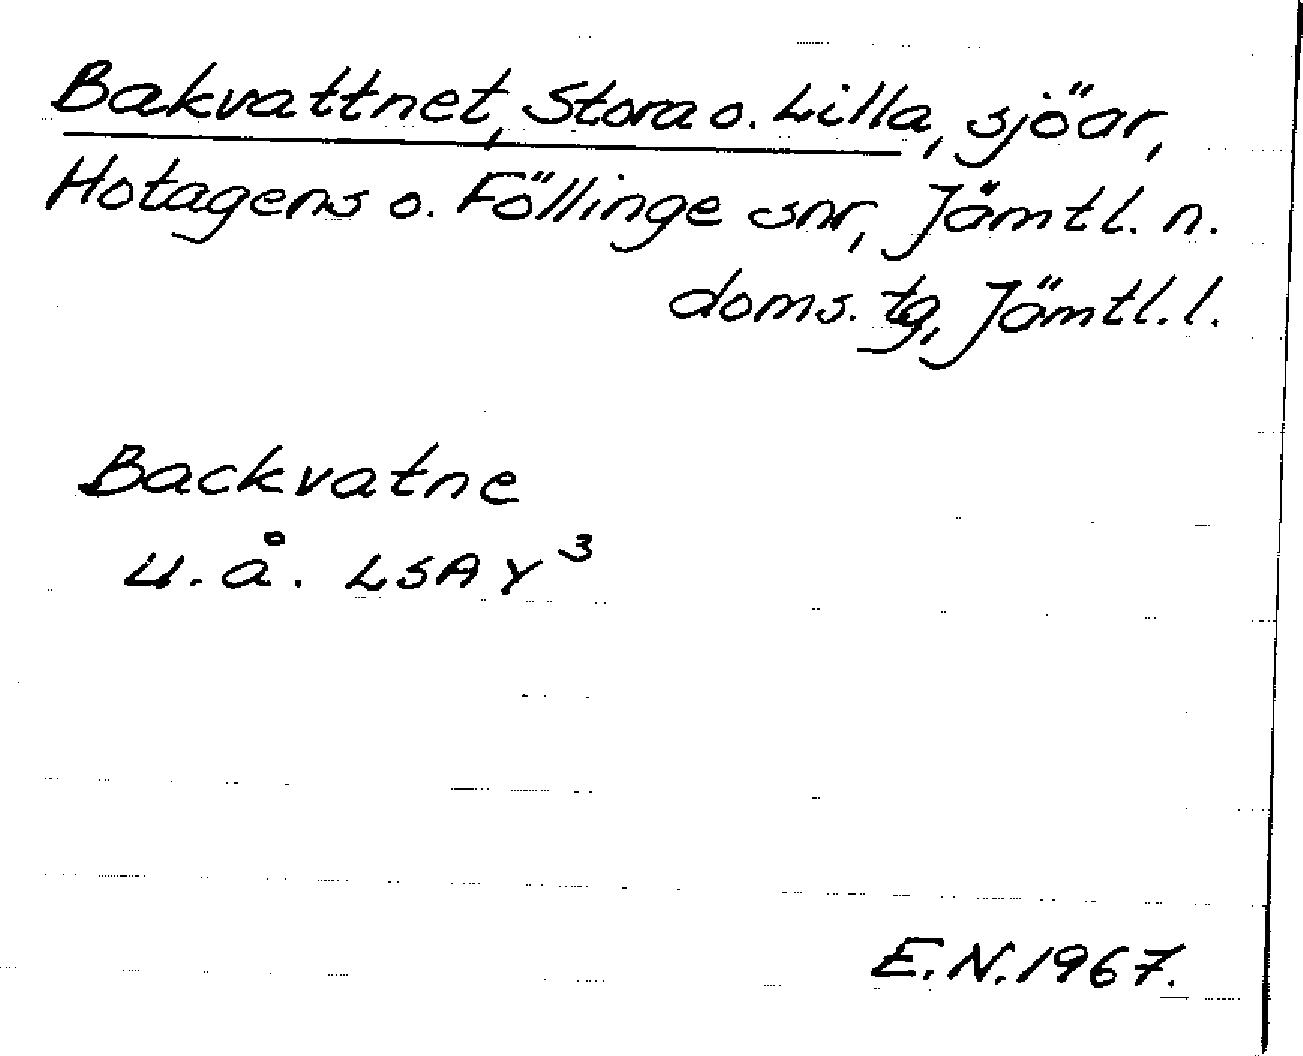 Bakvattnet, Stora o. Lilla, sjöar,
Hotagens o. Föllinge snr, Jämtl. n.
doms. tg, Jämtl. l.
Backvatne
u. å. LSA Y³
E.N. 1967.